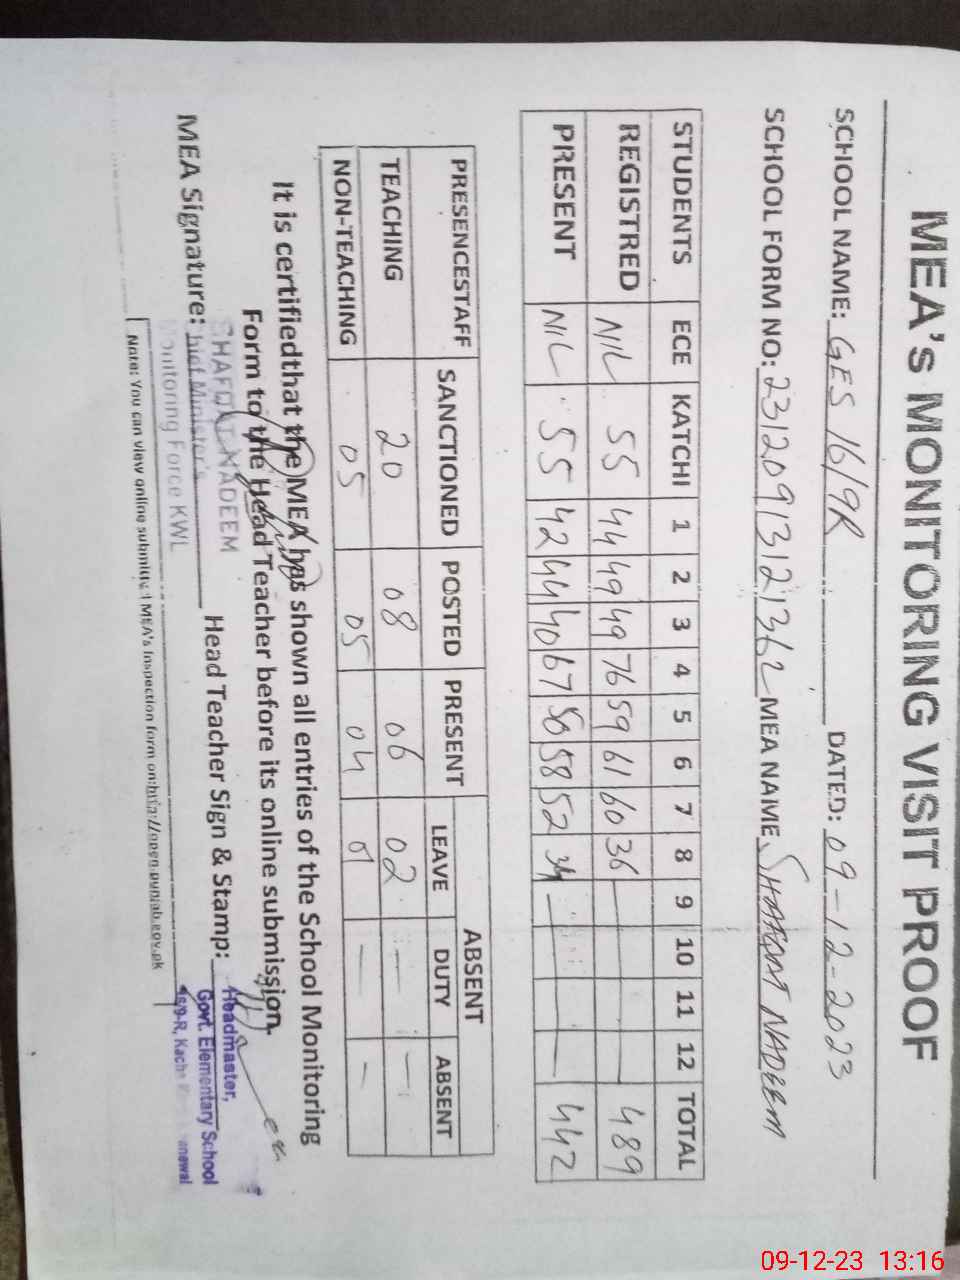 MEA's MONITORING VISIT PROOF
SCHOOL NAME: GES 16/9R DATED: 09-12-2023
SCHOOL FORM NO: MEA NAME, SHAFQAT NADEEM
STUDENTS ECE KATCHI 1 2 3 4 5 6 7 8 9 10 11 12 TOTAL
REGISTRED NIL 55 44 49 49 76 59 61 60 36 489
PRESENT NIL 55 42 44 40 67 50 58 52 34 442
PRESENCESTAFF SANCTIONED POSTED PRESENT ABSENT
LEAVE DUTY ABSENT
TEACHING 20 08 06 02 — —
NON-TEACHING 05 05 04 01 — —
It is certifiedthat the MEA has shown all entries of the School Monitoring
Form to the Head Teacher before its online submission.
SHAFQAT NADEEM
MEA Signature: Chief Minister's Head Teacher Sign & Stamp:
Monitoring Force KWL
Headmaster,
Govt. Elementary School
16/9-R, Kacha
Note: You can view online submitted MEA's Inspection form on:http://open.punjab.gov.pk
09-12-23 13:16